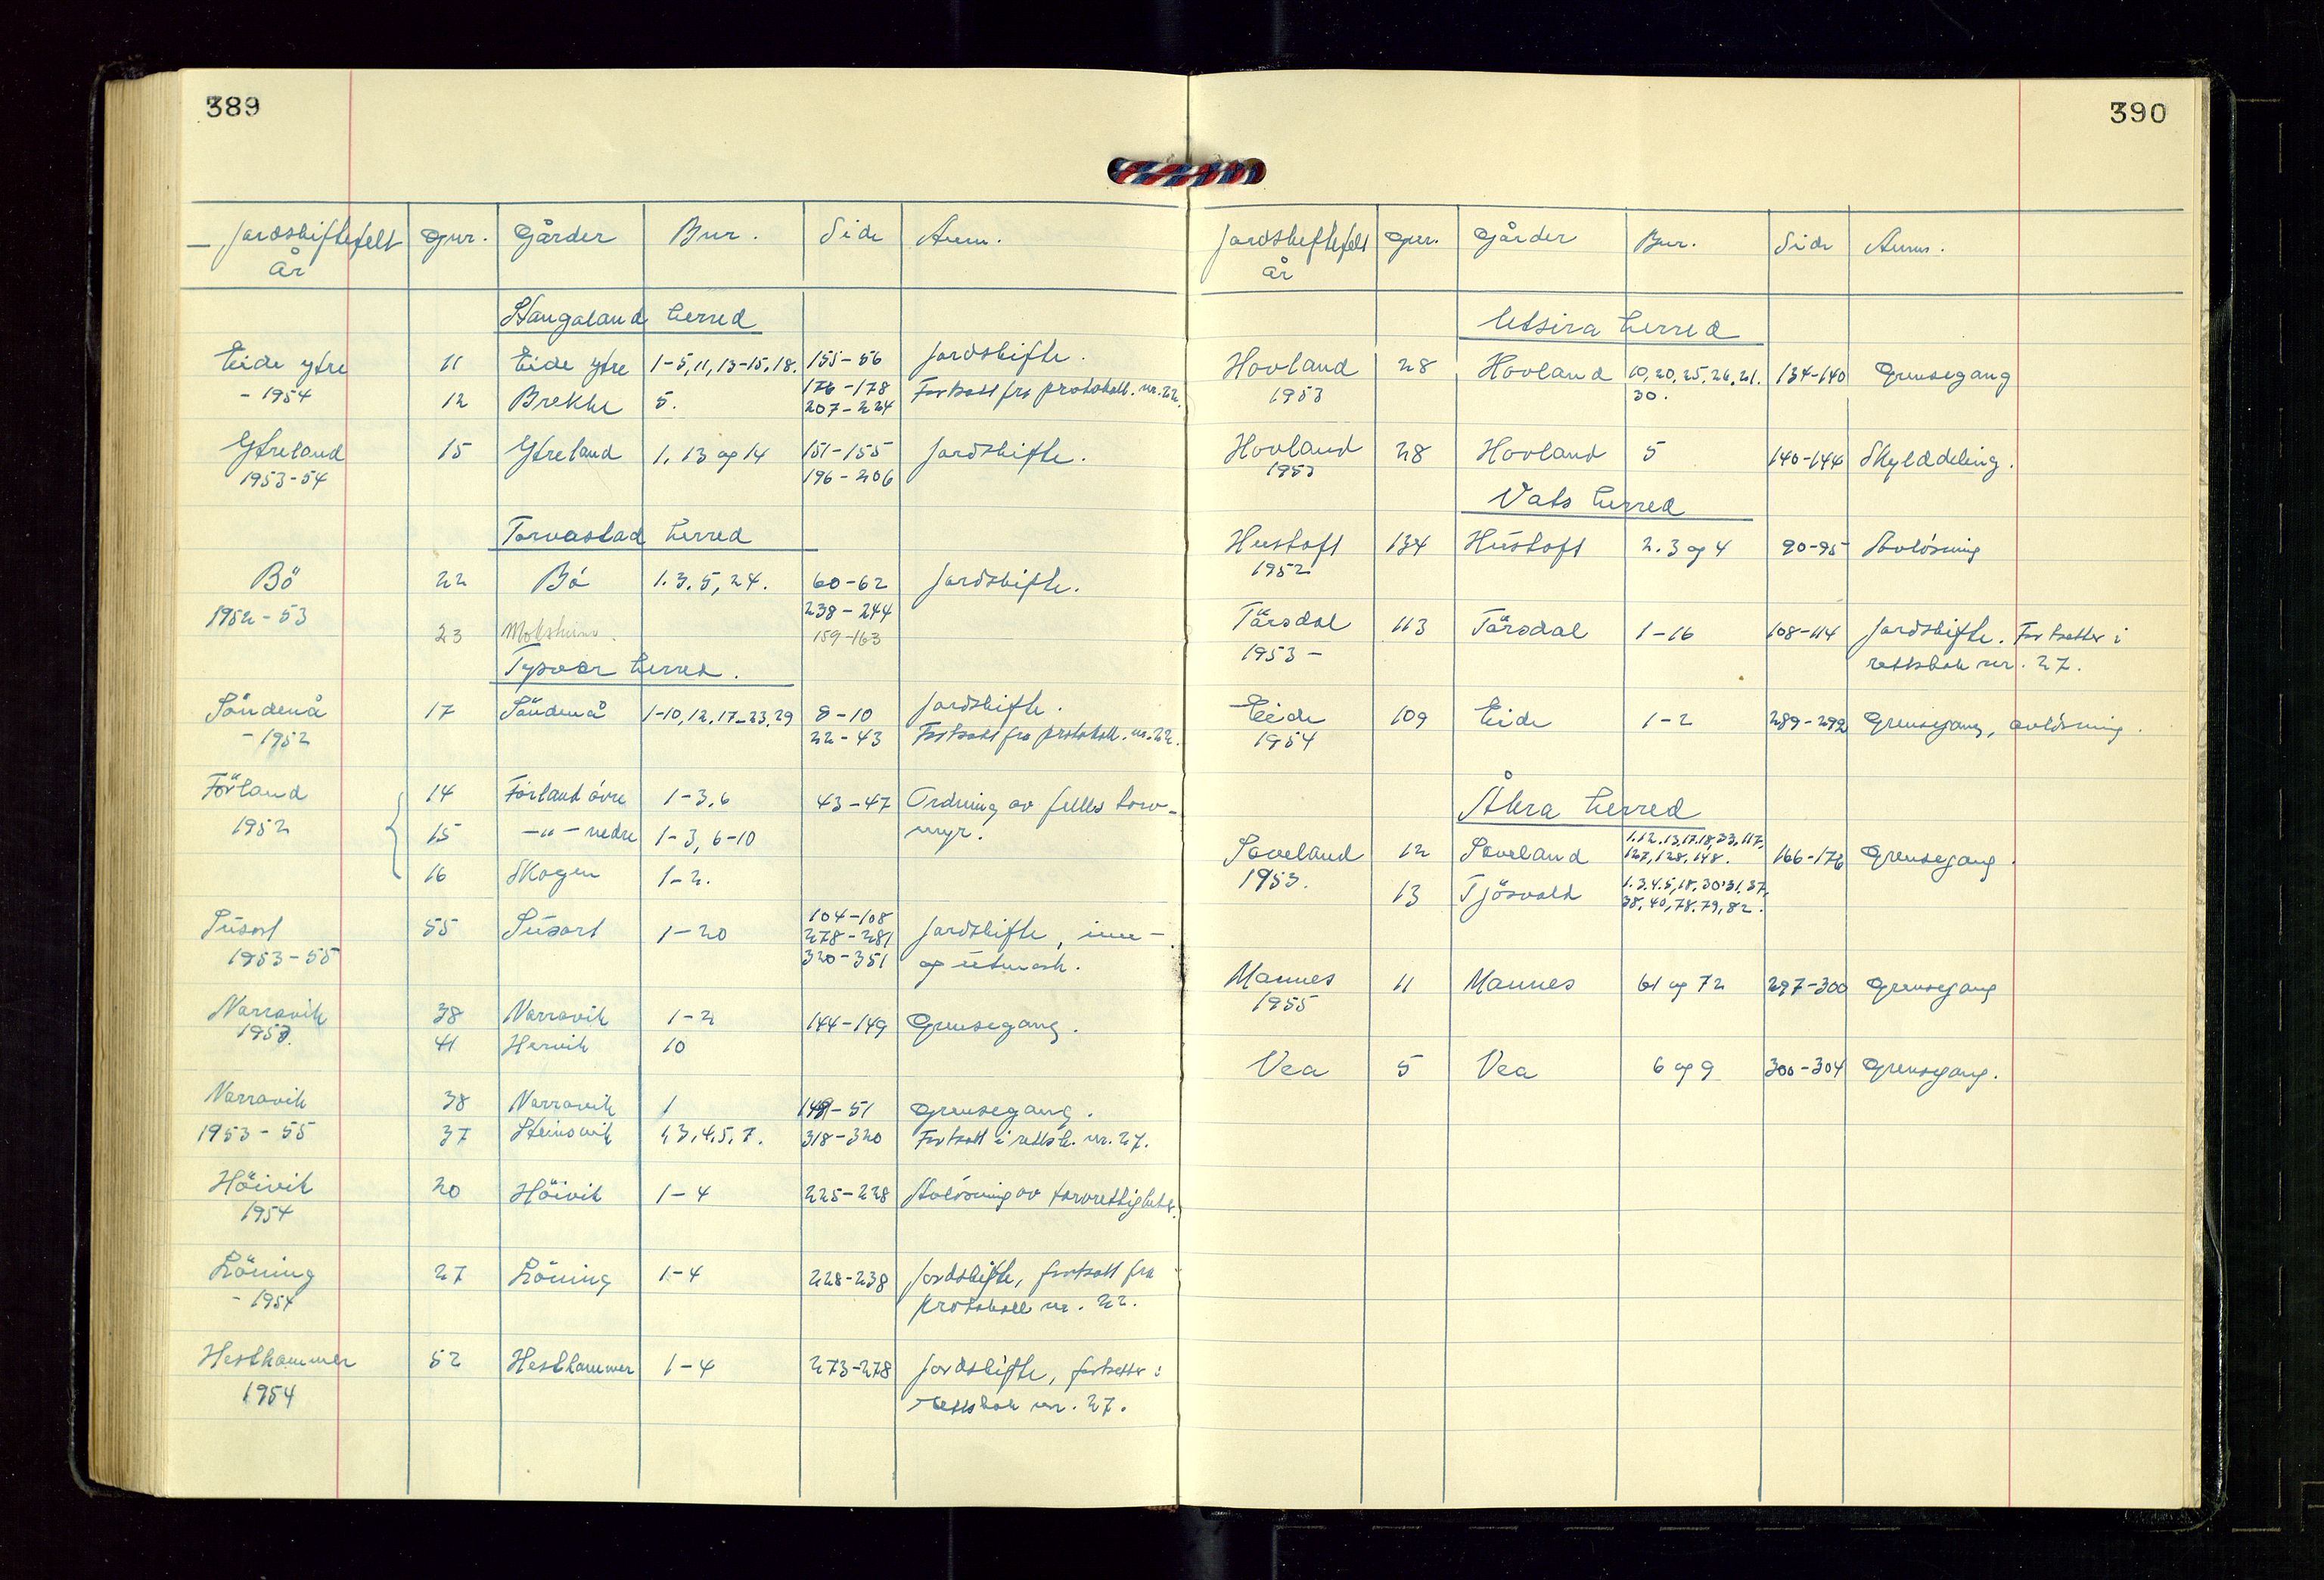 389
Jordskiftefelt Gnr. Gårder Bnr. Side Anm.
år
Skaugaland herred
Eide ytre 11 Eide ytre 1-5, 11, 13-15, 18. 155-56 Jordskifte.
- 1954 12 Brekke 5. 176-178 Fortsatt fra protokoll. nr. 22.
207-224
Ytreland 15 Ytreland 1, 13 og 14 151-155 Jordskifte.
1953-54 196-206
Torvastad herred
Bö 22 Bö 1. 3. 5, 24. 60-62 Jordskifte.
1952-53 238-244
23 159-163
Tysvær herred.
Söndenå 17 Söndenå 1-10, 12, 17-23, 29 8-10 Jordskifte.
- 1952 22-43 Fortsatt fra protokoll. nr. 22.
Förland 14 Förland övre 1-3, 6 43-47 Ordning av felles torv-
1952 15 -"- nedre 1-3, 6-10 myr.
16 Skogen 1-2.
104-108
Susort 55 Susort 1-20 278-281 Jordskifte, inn-
1953-55 320-351 og utmark.
Narravik 38 Narravik 1-2 144-149 Grensegang.
1953. 41 Hervik 10
Narravik 38 Narravik 1 149-51 Grensegang.
1953-55 37 Steinsvik 1, 3, 4, 5, 7. 318-320 Fortsatt i rettsb. nr. 27.
Höivik 20 Höivik 1-4 225-228 Avlösning av torvrettigheter.
1954
Löning 27 Löning 1-4 228-238 Jordskifte, fortsatt fra
- 1954 protokoll nr. 22.
Hesthammer 52 Hesthammer 1-4 273-278 Jordskifte, fortsetter i
1954 rettsbok nr. 27.
390
Jordskiftefelt Gnr. Gårder Bnr. Side Anm.
år
Utsira herred
Hovland 28 Hovland 10, 20, 25, 26, 21. 134-140 Grensegang
1953 30.
Hovland 28 Hovland 5 140-144 Skylddeling.
1953
Vats herred
Hustoft 134 Hustoft 2. 3 og 4 90-95 Avlösning
1952
Tärsdal 113 Tärsdal 1-16 108-114 Jordskifte. Fortsetter i
1953 - rettsbok nr. 27.
Eide 109 Eide 1-2 289-292 Grensegang, avlösning.
1954
Åkra herred
1. 12. 13, 17. 18, 33, 117,
Sæveland 12 Sæveland 127, 128, 148. 166-176 Grensegang.
1953. 13 Tjösvold 1. 3. 4. 5, 18, 30, 31, 37,
38, 40, 78. 79, 82.
Mannes 11 Mannes 61 og 72 297-300 Grensegang
1955
Vea 5 Vea 6 og 9 300-304 Grensegang.